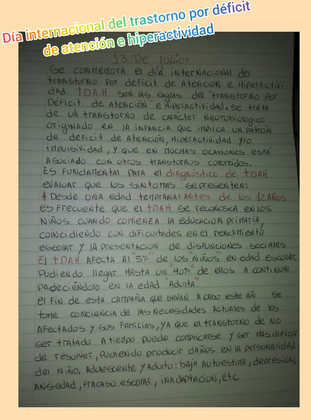 Día internacional del trastorno por déficit
de atención e hiperactividad
13 DE JULIO
SE CONMEMORA EL DÍA INTERNACIONAL DEL
TRASTORNO POR DÉFICIT DE ATENCIÓN E HIPERACTIVI
DAD TDAH SON LAS SIGLAS DEL TRASTORNO POR
DÉFICIT DE ATENCIÓN E HIPERACTIVIDAD, SE TRATA
DE UN TRASTORNO DE CARÁCTER NEUROBIOLÓGICO
ORIGINADO EN LA INFANCIA QUE IMPLICA UN PATRÓN
DE DÉFICIT DE ATENCIÓN, HIPERACTIVIDAD Y/O
IMPULSIVIDAD, Y QUE EN MUCHAS OCASIONES ESTÁ
ASOCIADO CON OTROS TRASTORNOS COMORBIDOS.
ES FUNDAMENTAL PARA EL DIAGNÓSTICO DE TDAH
EVALUAR QUE LOS SÍNTOMAS SE PRESENTEN:
DESDE UNA EDAD TEMPRANA: ANTES DE LOS 12 AÑOS
ES FRECUENTE QUE EL TDAH SE RECONOZCA EN LOS
NIÑOS CUANDO COMIENZA LA EDUCACIÓN PRIMARIA,
COINCIDIENDO CON DIFICULTADES EN EL RENDIMIENTO
ESCOLAR Y LA PRESENTACIÓN DE DISFUNCIONES SOCIALES
EL TDAH AFECTA AL 5% DE LOS NIÑOS EN EDAD ESCOLAR
PUDIENDO LLEGAR HASTA UN 40% DE ELLOS A CONTINUAR
PADECIÉNDOLO EN LA EDAD ADULTA.
EL FIN DE ESTA CAMPAÑA QUE LLEVAN A CABO ESTE AÑO SE
TOME CONCIENCIA DE LAS NECESIDADES ACTUALES DE LOS
AFECTADOS Y SUS FAMILIAS, YA QUE EL TRASTORNO DE NO
SER TRATADO A TIEMPO PUEDE COMPLICARSE Y SER MÁS DIFÍCIL
DE RESOLVER, PUDIENDO PRODUCIR DAÑOS EN LA PERSONALIDAD
DEL NIÑO, ADOLESCENTE Y ADULTO: BAJA AUTOESTIMA, DEPRESIÓN,
ANSIEDAD, FRACASO ESCOLAR, INADAPTACIÓN, ETC.